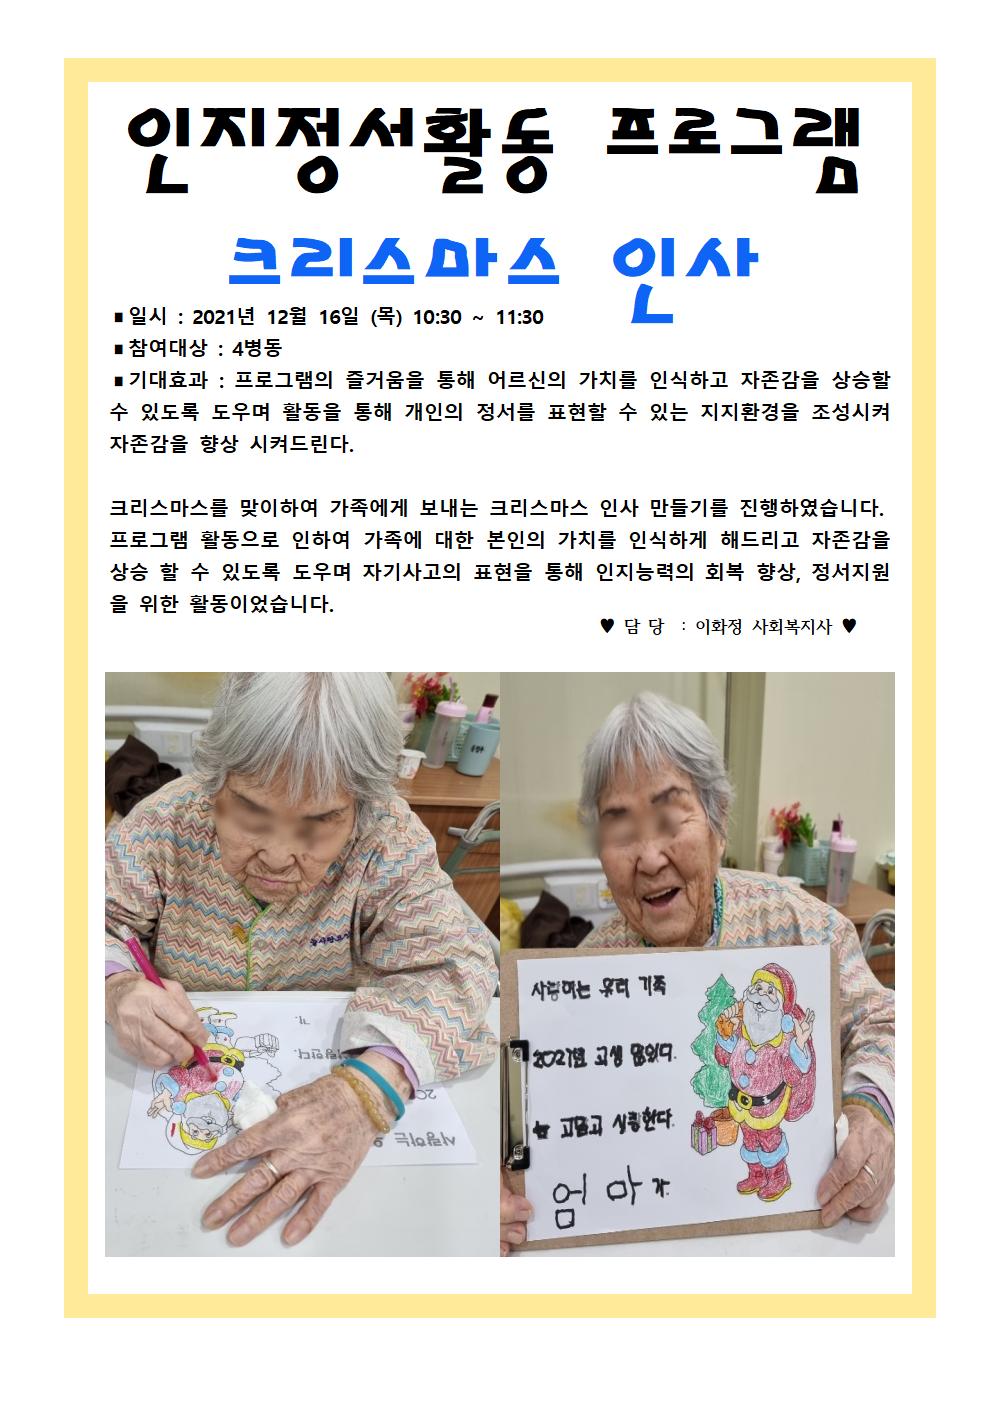 인지정서활동 프로그램
크리스마스 인사
■일시 : 2021년 12월 16일 (목) 10:30 ~ 11:30
■참여대상 : 4병동
■기대효과 : 프로그램의 즐거움을 통해 어르신의 가치를 인식하고 자존감을 상승할
수 있도록 도우며 활동을 통해 개인의 정서를 표현할 수 있는 지지환경을 조성시켜
자존감을 향상 시켜드린다.
크리스마스를 맞이하여 가족에게 보내는 크리스마스 인사 만들기를 진행하였습니다.
프로그램 활동으로 인하여 가족에 대한 본인의 가치를 인식하게 해드리고 자존감을
상승 할 수 있도록 도우며 자기사고의 표현을 통해 인지능력의 회복 향상, 정서지원
을 위한 활동이었습니다.
♥ 담 당 : 이화정 사회복지사 ♥
사랑하는 우리 가족
2021년 고생 많았다.
늘 고맙고 사랑한다.
엄마가.